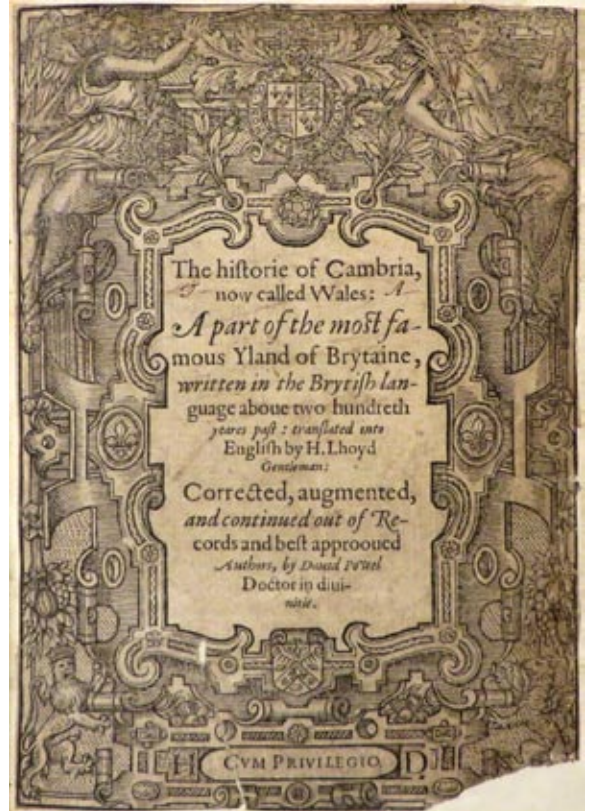 The hiſtorie of Cambria,
now called Wales: A
A part of the moſt fa-
mous Yland of Brytaine,
written in the Brytiſh lan-
guage aboue two hundreth
yeares paſt: tranſlated into
Engliſh by H. Lhoyd
Gentleman:
Corrected, augmented,
and continued out of Re-
cords and beſt approoued
Authors, by Dauid Powel
Doctor in diui-
nitie.
H CVM PRIVILEGIO, D